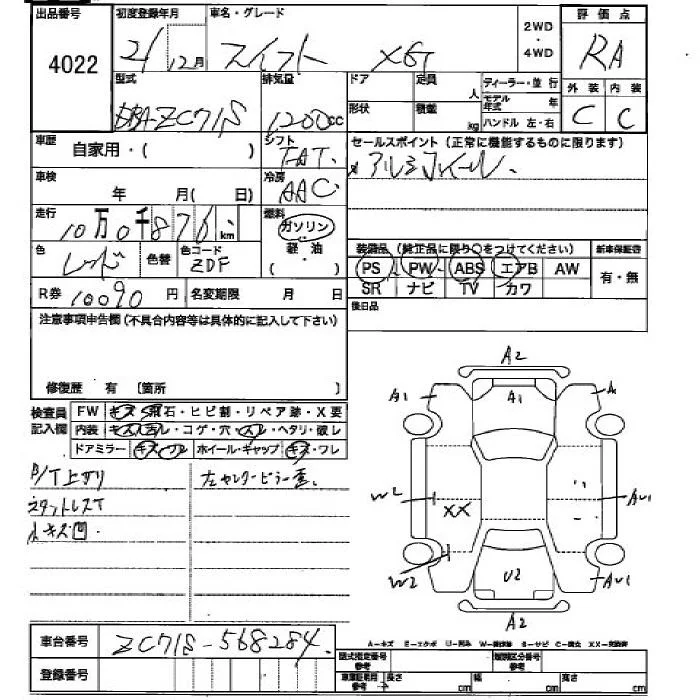 出品番号 初度登録年月 車名・グレード 2WD・4WD 評価点
4022 21 12月 スイフト XG RA
型式 排気量 ドア 定員 人 ディーラー・並行 外装 内装
DBA-ZC71S 1200cc 形状 積載 kg モデル年式 年 ハンドル 左・右 C C
車歴 自家用・( ) シフト FAT セールスポイント(正常に機能するものに限ります)
車検 年 月( 日) 冷房 AAC アルミホイール
走行 10万0千876km 燃料 ガソリン
色 レッド 色替 色コード ZDF 軽・油 ( ) 装備品(純正品に限り○をつけてください) 新車保証書
PS PW ABS エアB AW 有・無
R券 10090円 名変期限 月 日 SR ナビ TV カワ
注意事項申告欄(不具合内容等は具体的に記入して下さい) 後日品
修復歴 有 〔箇所 〕
検査員記入欄 FW キズ・飛石・ヒビ割・リペア跡・X要
内装 キズ・ヨゴレ・コゲ・穴・スレ・ヘタリ・破レ
ドアミラー キズ・フレ ホイール・キャップ キズ・フレ
左センターピラー歪
スタットレスT
小キズ凹
A2
A1 A1 A
W2 XX AU1
W2 U2 AU1
A2
車台番号 ZC71S-568284
A－キズ E－エクボ U－凹み W－補修跡 S－サビ C－腐食 XX－交換済
登録番号 型式指定番号 参考 類別区分番号 参考
車庫証明用 参考 長さ cm 幅 cm 高さ cm